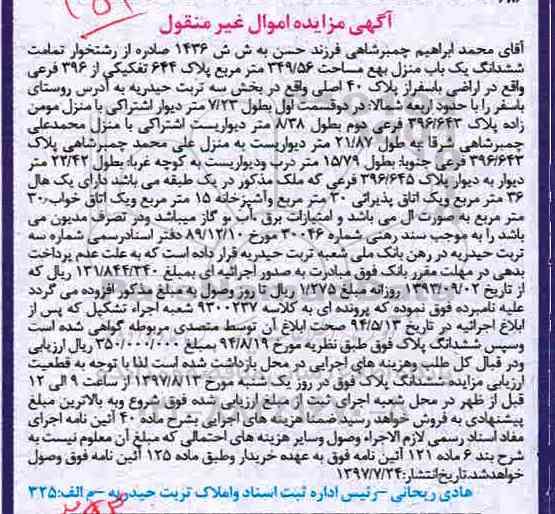 آگهی مزایده اموال غیر منقول
آقای محمد ابراهیم چمبرشاهی فرزند حسن به ش ش ۱۴۳۶ صادره از رشتخوار تمامت
ششدانگ یک باب منزل بهع مساحت ۳۴۹/۵۶ متر مربع پلاک ۶۴۴ تفکیکی از ۳۹۶ فرعی
واقع در اراضی باسفراز پلاک ۴۰ اصلی واقع در بخش سه تربت حیدریه به آدرس روستای
باسفر را با حدود اربعه شمالا: در دوقسمت اول بطول ۷/۲۳ متر دیوار اشتراکی با منزل مومن
زاده پلاک ۳۹۶/۶۴۳ فرعی دوم بطول ۸/۳۸ متر دیواریست اشتراکی با منزل محمدعلی
چمبرشاهی شرقا به طول ۲۱/۸۷ متر دیواریست به منزل علی محمد چمبرشاهی پلاک
۳۹۶/۶۴۳ فرعی جنوبا: بطول ۱۵/۷۹ متر درب ودیواریست به کوچه غربا: بطول ۲۲/۴۲ متر
دیوار به دیوار پلاک ۳۹۶/۶۴۵ فرعی که ملک مذکور در یک طبقه می باشد دارای یک هال
۳۶ متر مربع ویک اتاق پذیرائی ۳۰ متر مربع وآشپزخانه ۱۵ متر مربع ویک اتاق خواب۳۰
متر مربع به صورت ال می باشد و امتیازات برق ،آب ،و گاز میباشد ودر تصرف مدیون می
باشد را به موجب سند رهنی شماره ۳۰۰۴۶ مورخ ۸۹/۱۲/۱۰ دفتر اسنادرسمی شماره سه
تربت حیدریه در رهن بانک ملی شعبه تربت حیدریه قرار داده است که به علت عدم پرداخت
بدهی در مهلت مقرر بانک فوق مبادرت به صدور اجرائیه ای بمبلغ ۱۳۱/۸۴۴/۳۴۰ ریال که
از تاریخ ۱۳۹۳/۰۹/۰۲ روزانه مبلغ ۱/۲۷۵ ریال تا روز وصول به مبلغ مذکور افزوده می گردد
علیه نامبرده فوق نموده که پرونده ای به کلاسه ۹۳۰۰۲۳۷ شعبه اجراء تشکیل که پس از
ابلاغ اجرائیه در تاریخ ۹۴/۵/۱۳ صحت ابلاغ آن توسط متصدی مربوطه گواهی شده است
وسپس ششدانگ پلاک فوق طبق نظریه مورخ ۹۴/۸/۱۹ بمبلغ ۳۵۰/۰۰۰/۰۰۰ ریال ارزیابی
ودر قبال کل طلب وهزینه های اجرایی در محل بازداشت شده است لذا با توجه به قطعیت
ارزیابی مزایده ششدانگ پلاک فوق در روز یک شنبه مورخ ۱۳۹۷/۸/۱۳ از ساعت ۹ الی ۱۲
قبل از ظهر در محل شعبه اجرای ثبت از مبلغ ارزیابی شده فوق شروع وبه بالاترین مبلغ
پیشنهادی به فروش خواهد رسید ضمنا هزینه های اجرایی بشرح ماده ۴۰ آئین نامه اجرای
مفاد اسناد رسمی لازم الاجراء وصول وسایر هزینه های احتمالی که مبلغ آن معلوم نیست به
شرح بند ۶ ماده ۱۲۱ آئین نامه فوق به عهده خریدار وطبق ماده ۱۲۵ آئین نامه فوق وصول
خواهدشد.تاریخ انتشار:۱۳۹۷/۷/۲۴
هادی ریحانی –رئیس اداره ثبت اسناد واملاک تربت حیدریه –م الف:۳۲۵